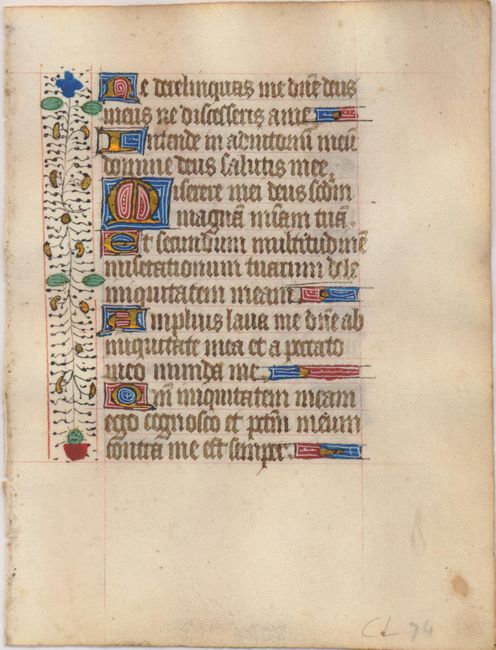 Ne derelinquas me dñe deus
meus ne discesseris a me
Intende in adiutoriũ meũ
domine deus salutis mee
Miserere mei deus scdm̃
magnã mĩam tuã.
Et secundum multitudinẽ
miserationum tuarum dele
iniquitatem meam
Amplius laua me dñe ab
iniquitate mea et a peccato
meo munda me.
Qm̃ iniquitatem meam
ego cognosco et pctm̃ meum
contra me est semper.
CL 74